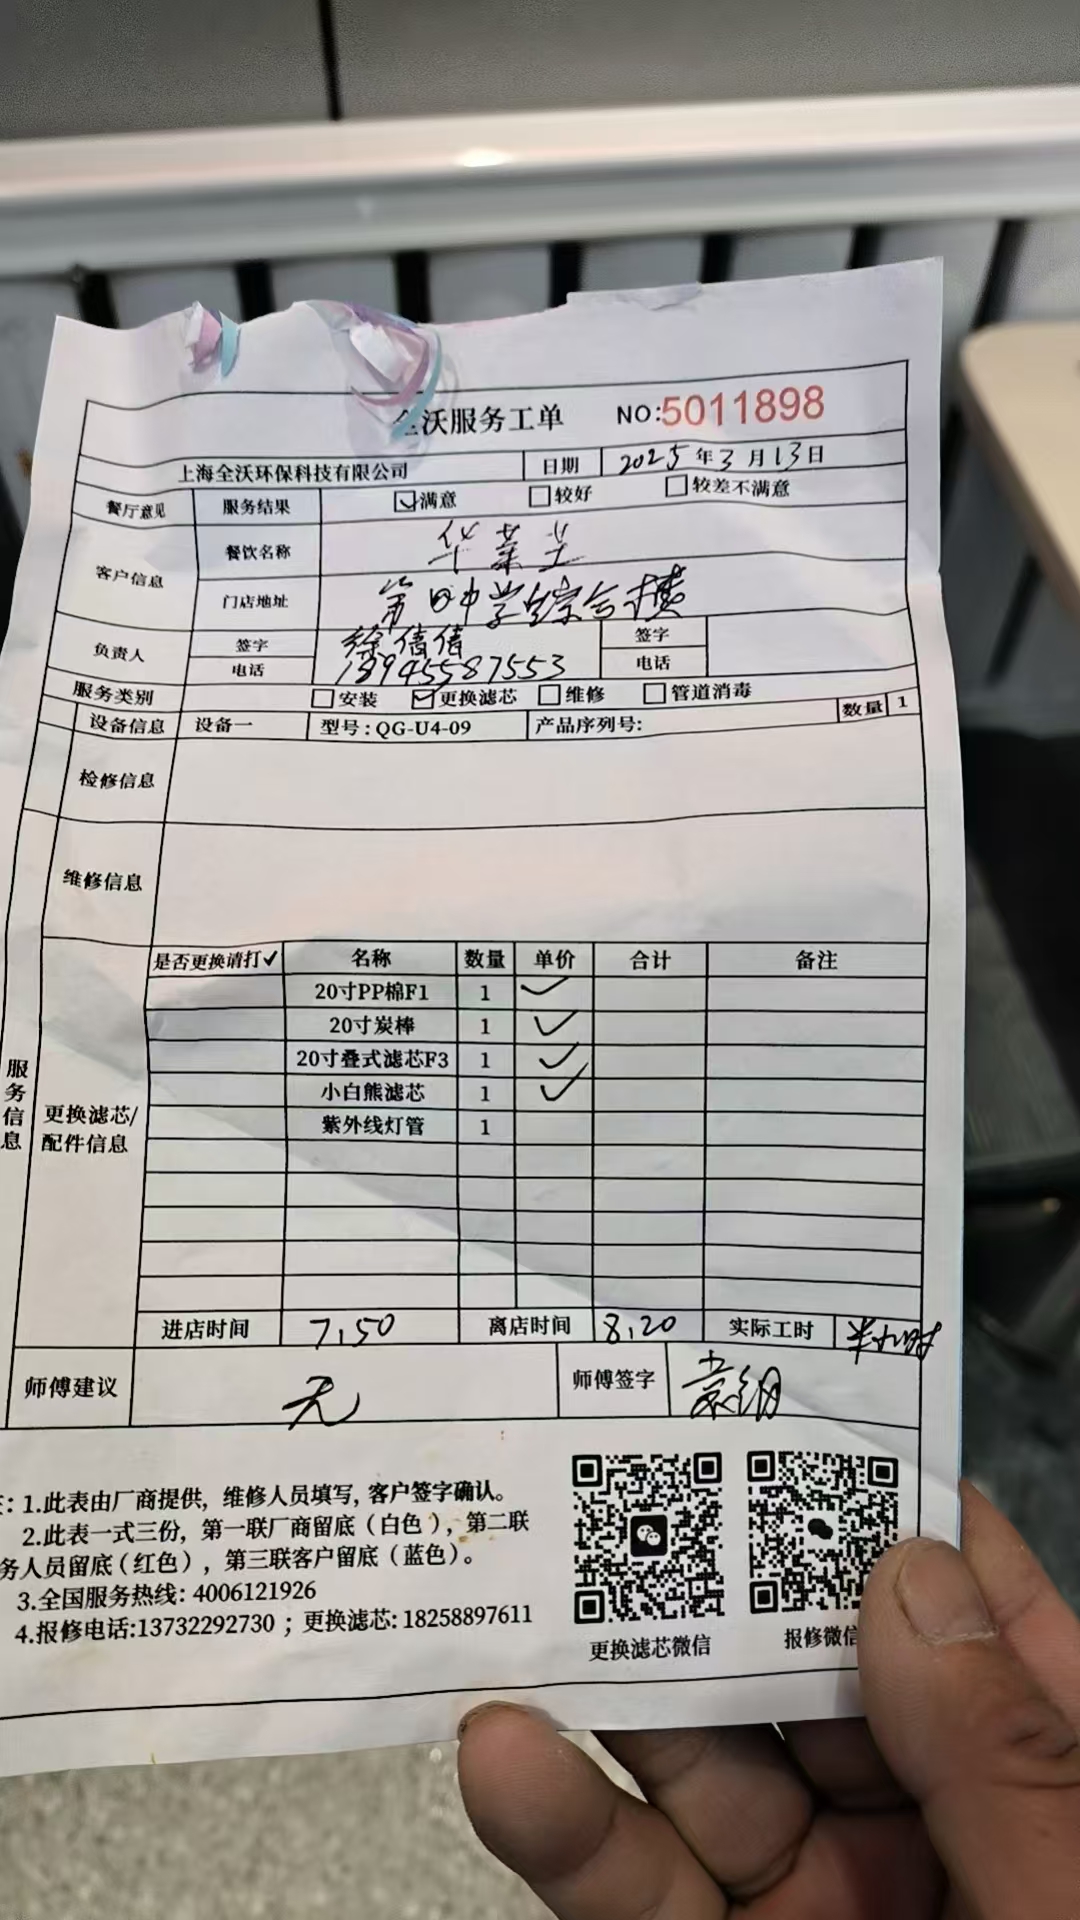 全沃服务工单 NO:5011898
上海全沃环保科技有限公司 日期 2025年3月13日
餐厅意见 服务结果 ☑满意 □较好 □较差不满意
客户信息 餐饮名称 华莱士
门店地址 第四中学综合楼
负责人 签字 徐倩倩 签字
电话 13945587553 电话
服务类别 □安装 ☑更换滤芯 □维修 □管道消毒
设备信息 设备一 型号:QG-U4-09 产品序列号: 数量 1
检修信息
维修信息
服务信息
更换滤芯/配件信息
是否更换请打✓ 名称 数量 单价 合计 备注
20寸PP棉F1 1 ✓
20寸炭棒 1 ✓
20寸叠式滤芯F3 1 ✓
小白熊滤芯 1 ✓
紫外线灯管 1
进店时间 7:50 离店时间 8:20 实际工时 半小时
师傅建议 无 师傅签字
:1.此表由厂商提供, 维修人员填写, 客户签字确认。
2.此表一式三份, 第一联厂商留底(白色), 第二联
务人员留底(红色), 第三联客户留底(蓝色)。
3.全国服务热线: 4006121926
4.报修电话:13732292730 ; 更换滤芯: 18258897611
更换滤芯微信 报修微信